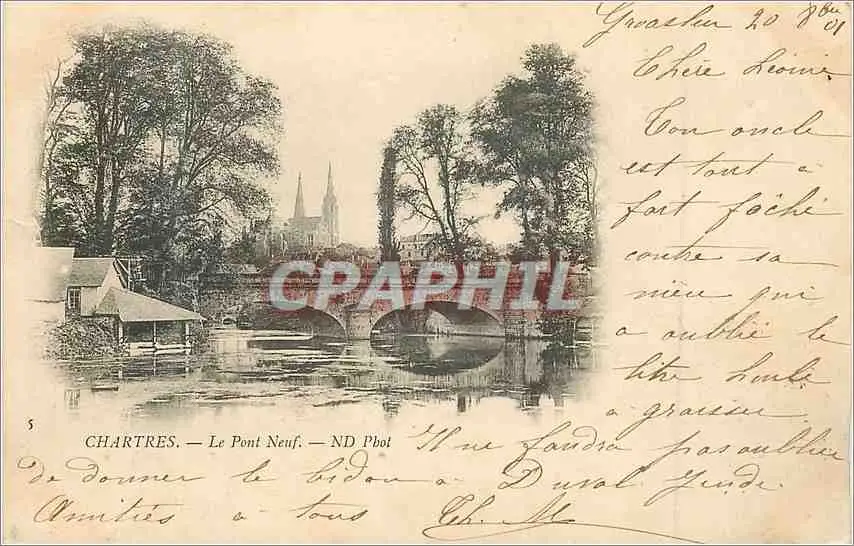 20 8bre 01
Chère Léonie
Ton oncle
est tout à
fait fâché
contre sa
nièce qui
a oublié le
litre d'huile
à graisser
CPAPHIL
5
CHARTRES. — Le Pont Neuf. — ND Phot
Il ne faudra pas oublier
de donner le bidon à Duval
Amitiés à tous
Th. M